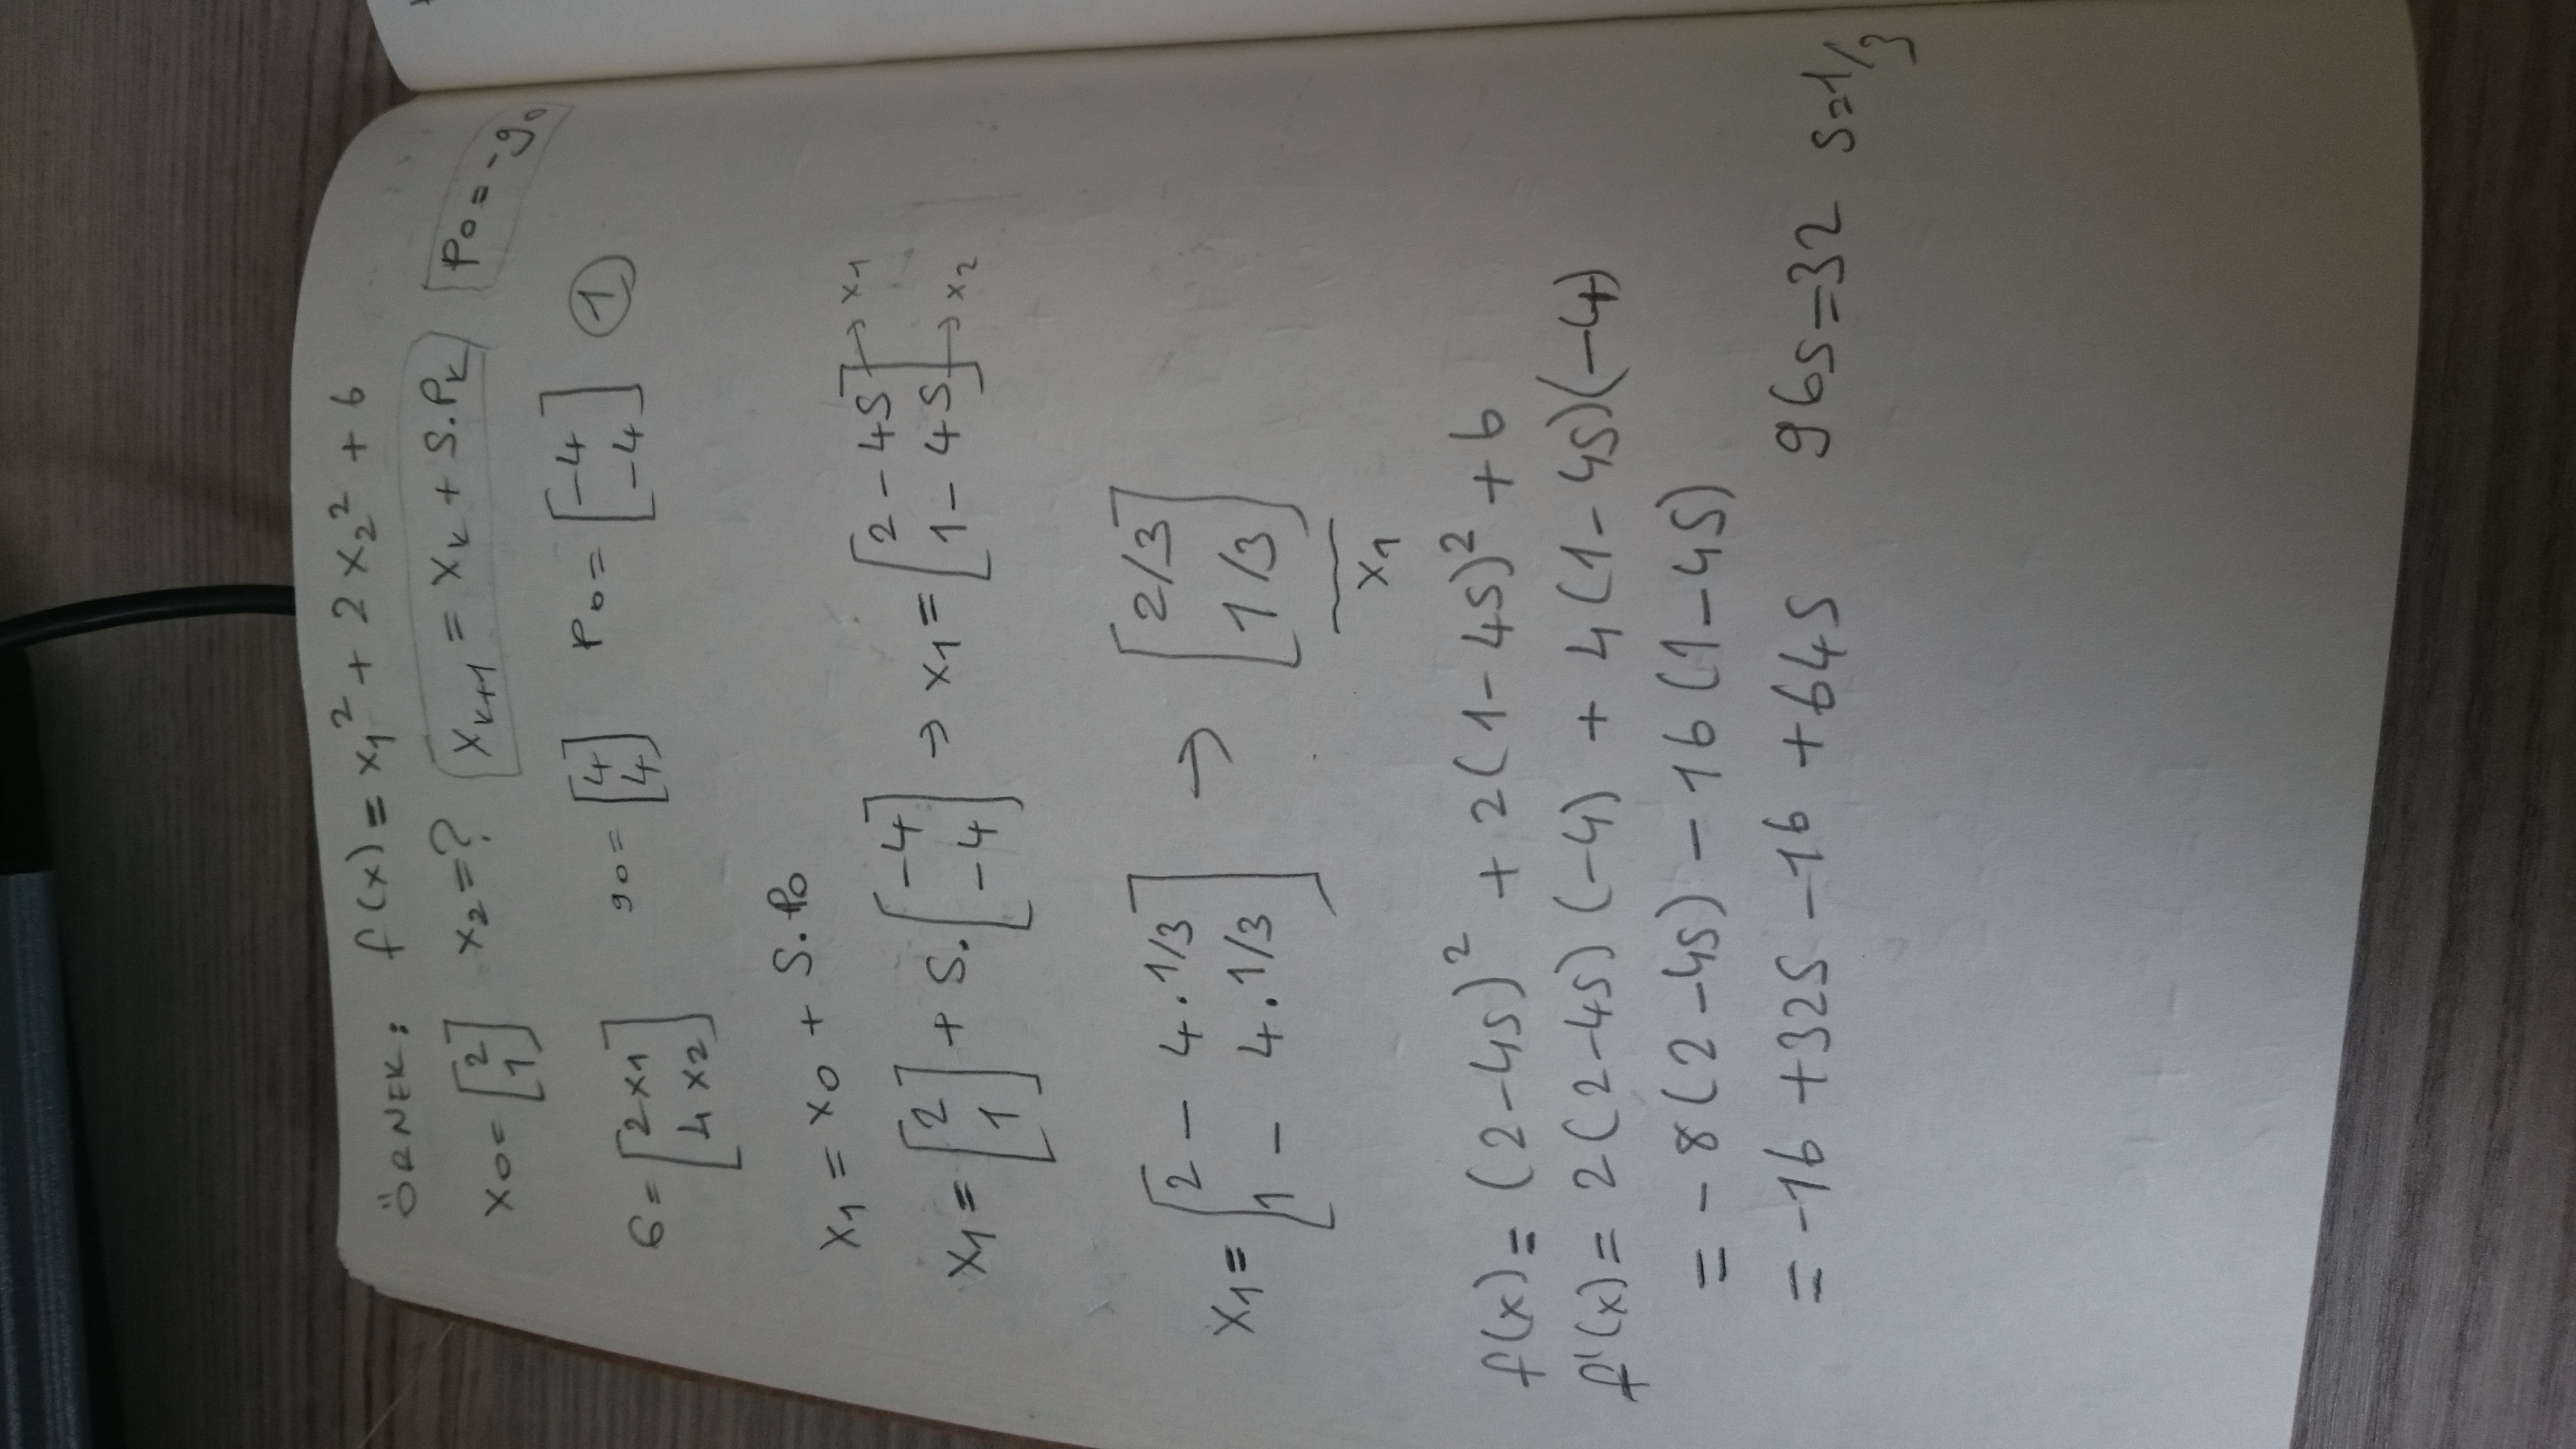 ÖRNEK: f(x) = x₁² + 2x₂² + 6
x0 = [2 1] x₂ = ? xₖ₊₁ = xₖ + S.Pₖ P₀ = -g₀
G = [2x1 4x2] g0 = [4 4] P₀ = [-4 -4] 1
x₁ = x₀ + S.P₀
x₁ = [2 1] + S.[-4 -4] → x₁ = [2 - 4S 1 - 4S] → x1 → x2
x₁ = [2 - 4.1/3 1 - 4.1/3] → [2/3 1/3]
x₁
f(x) = (2-4S)² + 2(1-4S)² + 6
f'(x) = 2(2-4S)(-4) + 4(1-4S)(-4)
= -8(2-4S) - 16(1-4S)
= -16 + 32S - 16 + 64S 96S = 32 S = 1/3